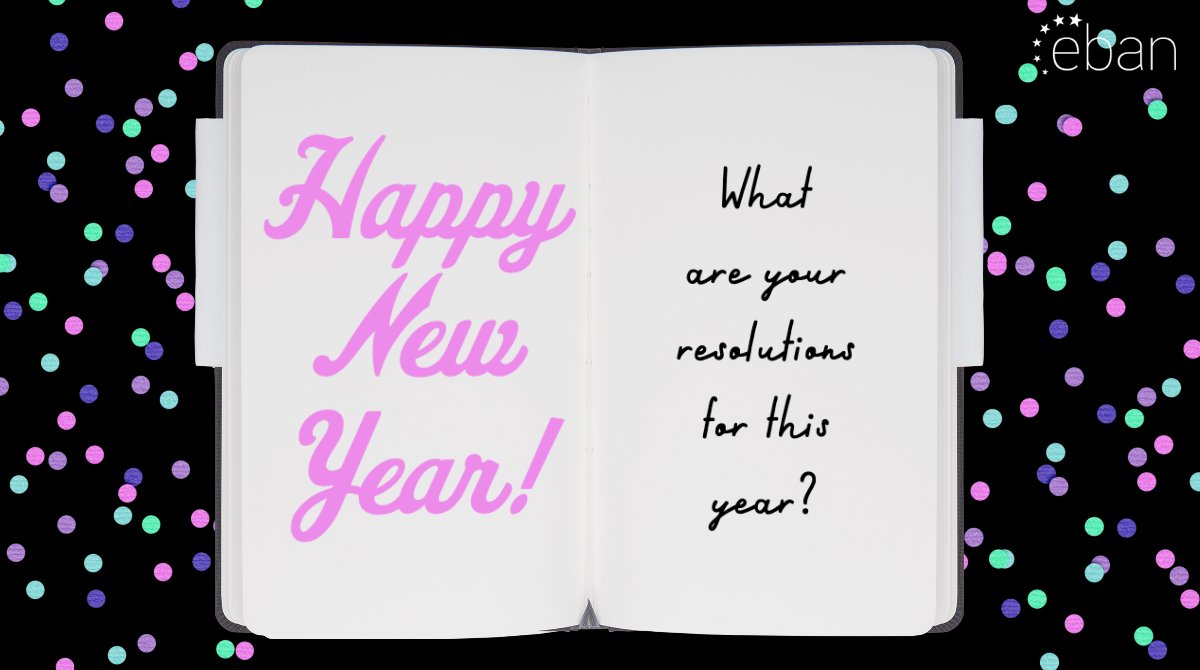 eban
Happy
New
Year!
What
are your
resolutions
for this
year?